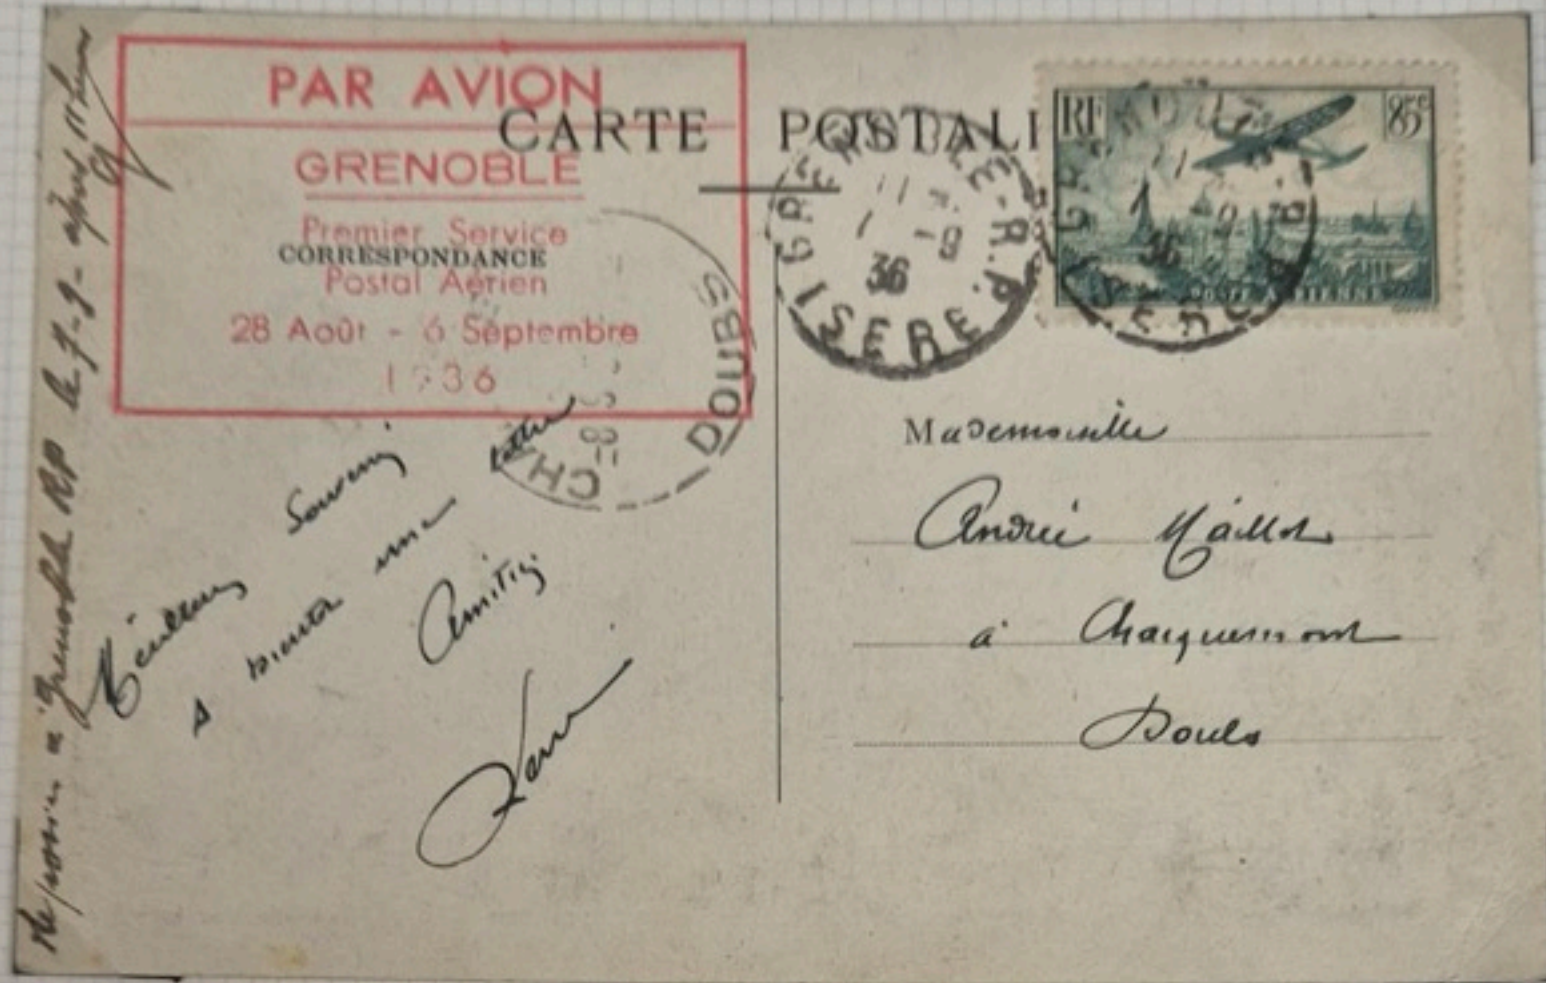 PAR AVION
GRENOBLE
Premier Service
Postal Aérien
28 Août - 6 Septembre
1936
CARTE POSTALE
CORRESPONDANCE
RF 85c
GRENOBLE-R.P.
11
1 -9
36
ISERE
DOUBS
à Grenoble RP le 7-9- après 11 heures
Meilleur Souvenir
A bientôt une lettre
Amitiés
Mademoiselle
Andrée Maillot
à Charquemont
Doubs